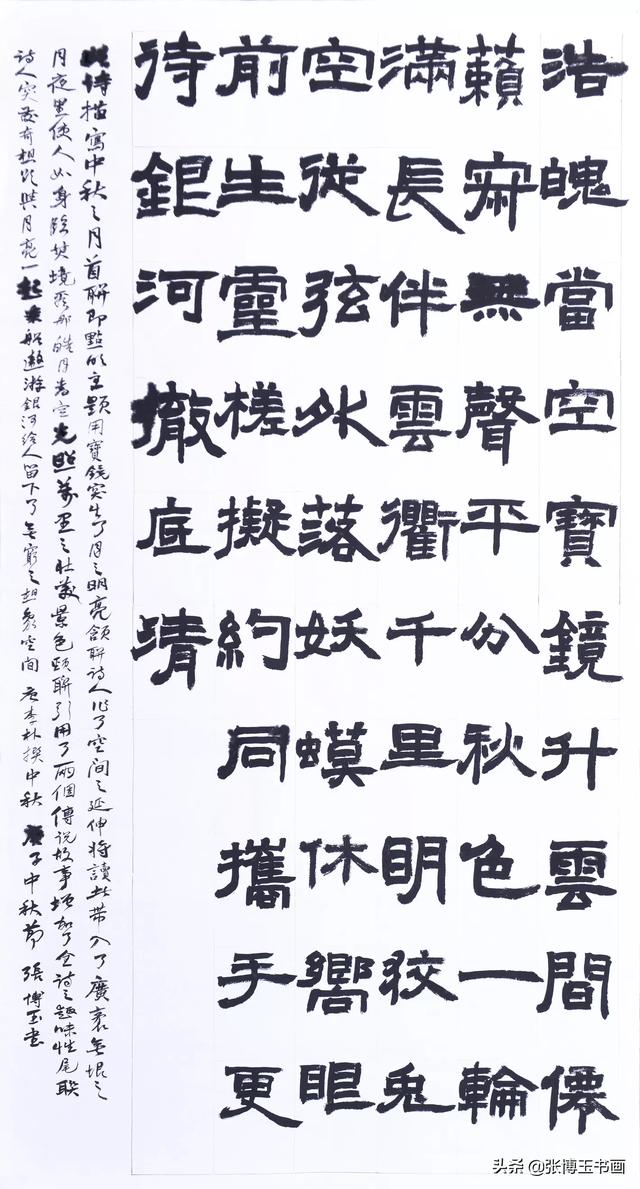 浩魄當空寶鏡升雲間僊
籟寂無聲平分秋色一輪
滿長伴雲衢千里明狡兔
空從弦外落妖蟆休嚮眼
前生靈槎擬約同攜手更
待銀河撤底清
此詩描寫中秋之月首聯即點明主題用寶鏡突出了月之明亮頷聯詩人作了空間之延伸將讀者帶入了廣袤無垠之
月夜里使人如身臨其境看那皓月當空光照萬里之壯麗景色頸聯引用了兩個傳说故事增加了全詩之趣味性尾联
詩人突發奇想欲與月亮一起乘船遨游銀河給人留下了無窮之想象空間 宋李朴撰中秋 庚子中秋節 張博玉書
头条 @张博玉书画